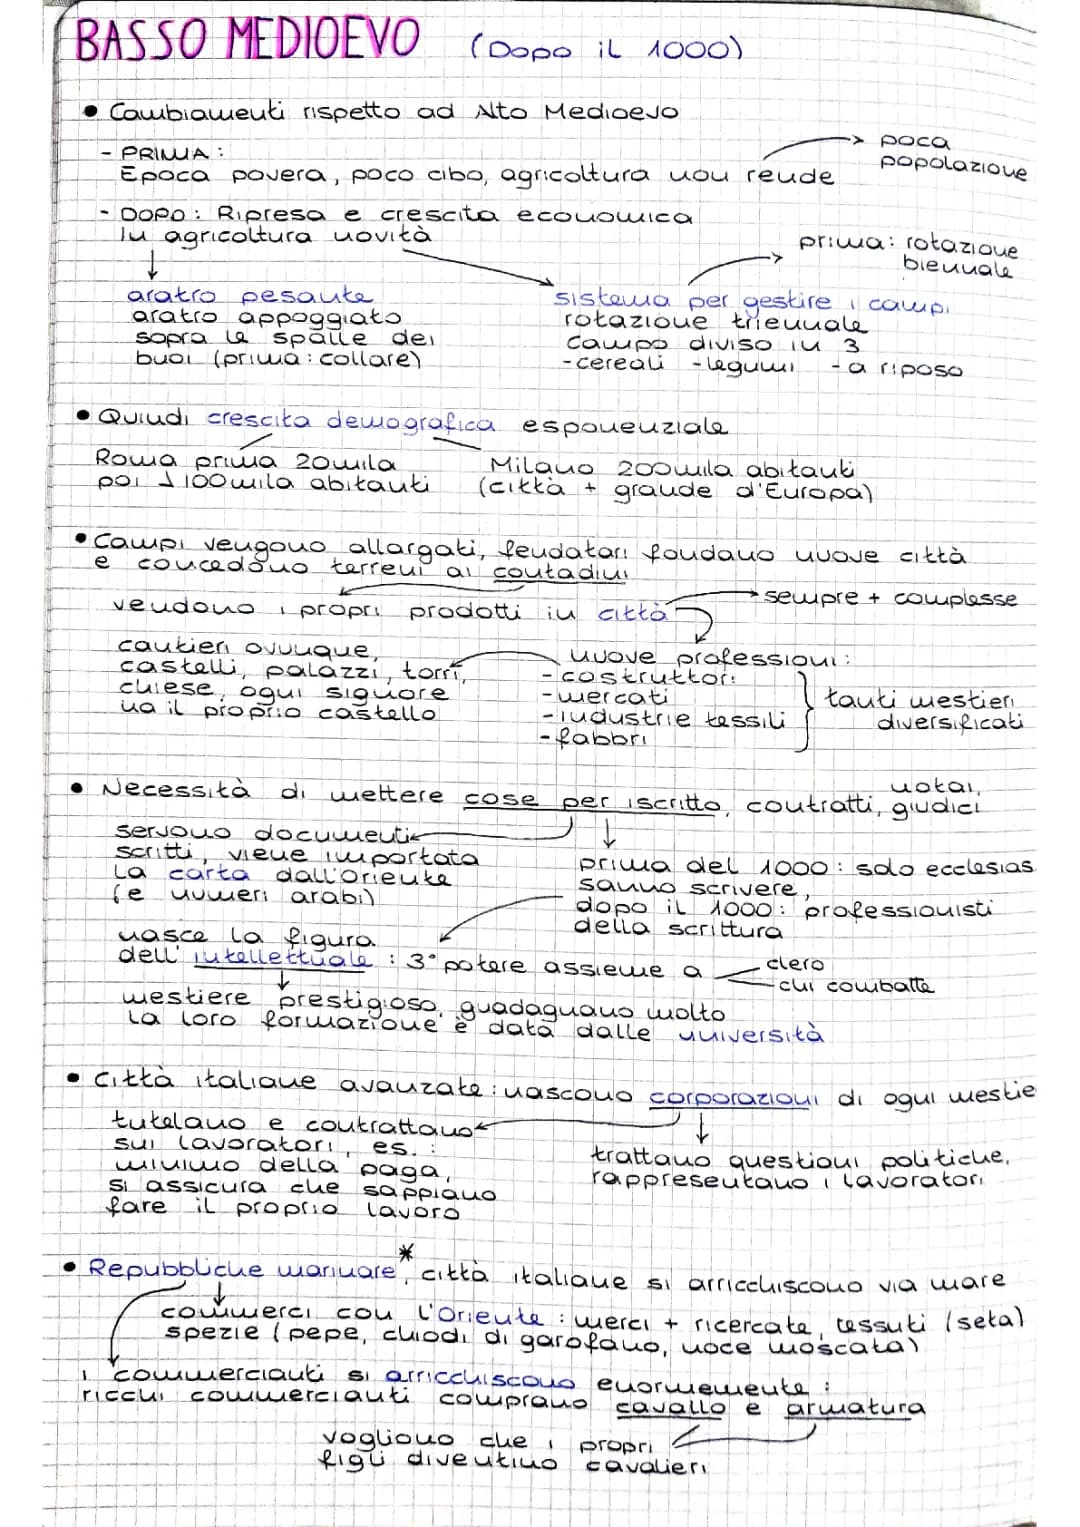 BASSO MEDIOEVO (Dopo il 1000)
• Cambiamenti rispetto ad Alto Medioevo
- PRIMA:
Epoca povera, poco cibo, agricoltura non rende
poca
popolazione
- DOPO: Ripresa e crescita economica
In agricoltura novità
prima: rotazione
biennale
aratro pesante
aratro appoggiato
sopra le spalle dei
buoi (prima: collare)
sistema per gestire i campi
rotazione triennale
campo diviso in 3
- cereali - legumi - a riposo
• Quindi crescita demografica esponenziale
Roma prima 20mila
poi 100mila abitanti
Milano 200mila abitanti
(città + grande d'Europa)
• Campi vengono allargati, feudatari fondano nuove città
e concedono terreni ai contadini
vendono i propri prodotti in città
sempre + complesse
cantieri ovunque,
castelli, palazzi, torri,
chiese, ogni signore
ha il proprio castello
nuove professioni:
- costruttori
- mercati
- industrie tessili
- fabbri
tanti mestieri
diversificati
• Necessità di mettere cose per iscritto, contratti, giudici
notai,
servono documenti
scritti, viene importata
la carta dall'Oriente
(e numeri arabi)
prima del 1000: solo ecclesias
sanno scrivere,
dopo il 1000: professionisti
della scrittura
nasce la figura
dell'intellettuale : 3° potere assieme a
clero
chi combatte
mestiere prestigioso, guadagnano molto
la loro formazione è data dalle università
• città italiane avanzate: nascono corporazioni di ogni mestie
tutelano e contrattano
sui lavoratori, es.:
minimo della paga,
si assicura che sappiano
fare il proprio lavoro
trattano questioni politiche,
rappresentano i lavoratori
*
• Repubbliche marinare, città italiane si arricchiscono via mare
commerci con l'Oriente: merci + ricercate, tessuti (seta)
spezie (pepe, chiodi di garofano, noce moscata)
i commercianti si arricchiscono enormemente:
ricchi commercianti comprano cavallo e armatura
vogliono che i propri
figli diventino cavalieri